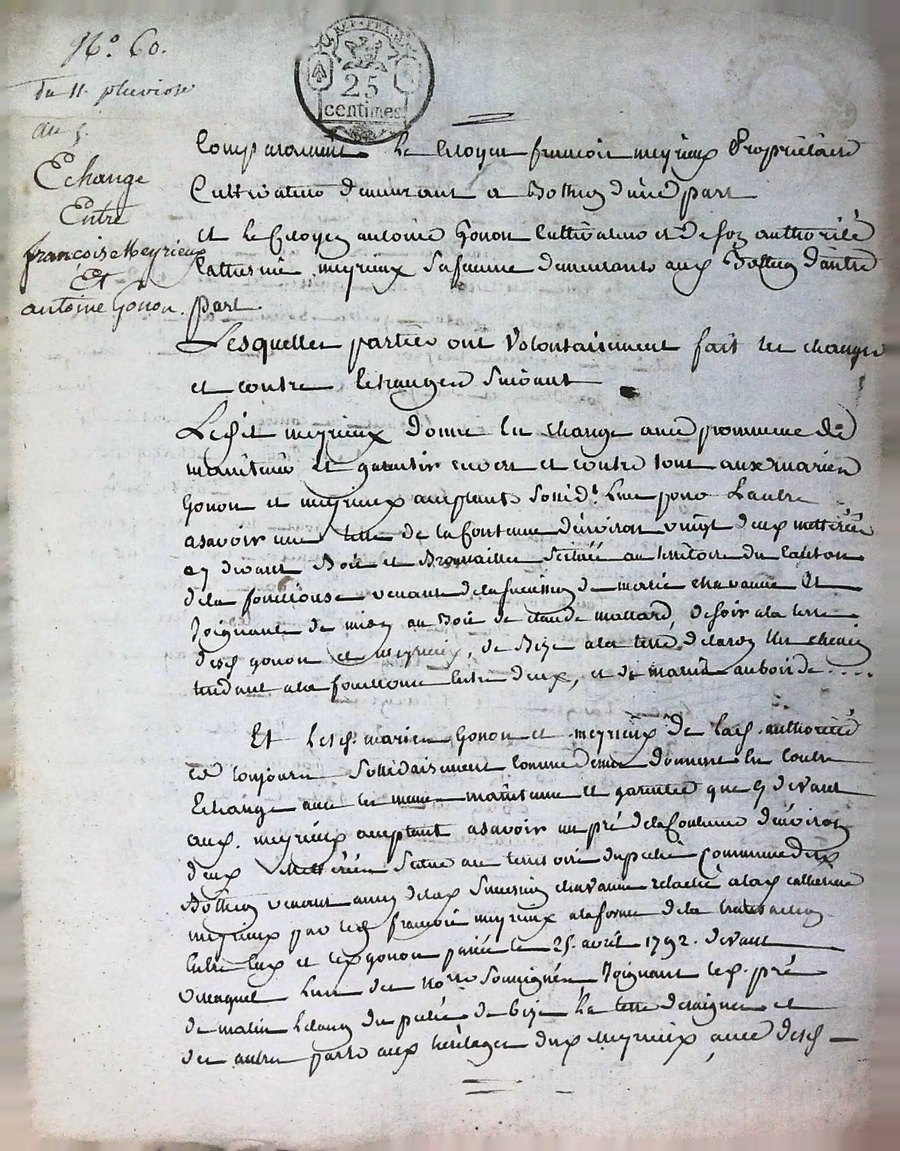 N.º 60.
du 11. pluviose
an 5.
Echange
Entre
françois Meyrieux
Et
antoine Gonon.
REP. FRA.
25
centimes
Comparaissent le Citoyen francois meyrieux Propriétaire
Cultivateur demeurant a Bothéon d'une part
et le Citoyen antoine Gonon Cultivateur et de son authorité
Catherine meyrieux sa femme demeurants aux Bothéon d'autre
part
Lesquelles parties ont volontairement fait les changes
et contre echanges suivant
Ledit meyrieux donne en change avec promesse de
maintenir et garantir envers et contre tout aux maries
Gonon et meyrieux acceptants solid.t l'un pour l'autre
asavoir une terre de la contenue d'environ vingt deux metterées
cy devant Bois et Broussailles située au territoire du canton
de la fouillouse venant de la succession de marie chavanne Et
Joignante de midy au Bois de claude mallard, de soir a la terre
desd. gonon et meyrieux, de Bize a la terre de Un chemin
tendant a la fouillouse entre deux, et de matin au bois de ....
Et lesd. maries Gonon et meyrieux de lad. authorité
et toujours sollidairement comme dessus donnent en contre
Echange avec les meme maintenue et garantie que cy devant
aud. meyrieux acceptant asavoir un pré de la Contenue d'environ
deux Metterées située au territoire du commune dud.
Bothéon venant aussy de lad. succession chavanne relachée a lad. catherine
meyrieux par led. francois meyrieux a la forme de la transaction
Entre eux et led. gonon passée le 25. avril 1792. devant
l'un des Not.res soussignés Joignant led. pré
de matin de bize la terre et
des autres parts aux héritages dud. Meyrieux, avec desd.